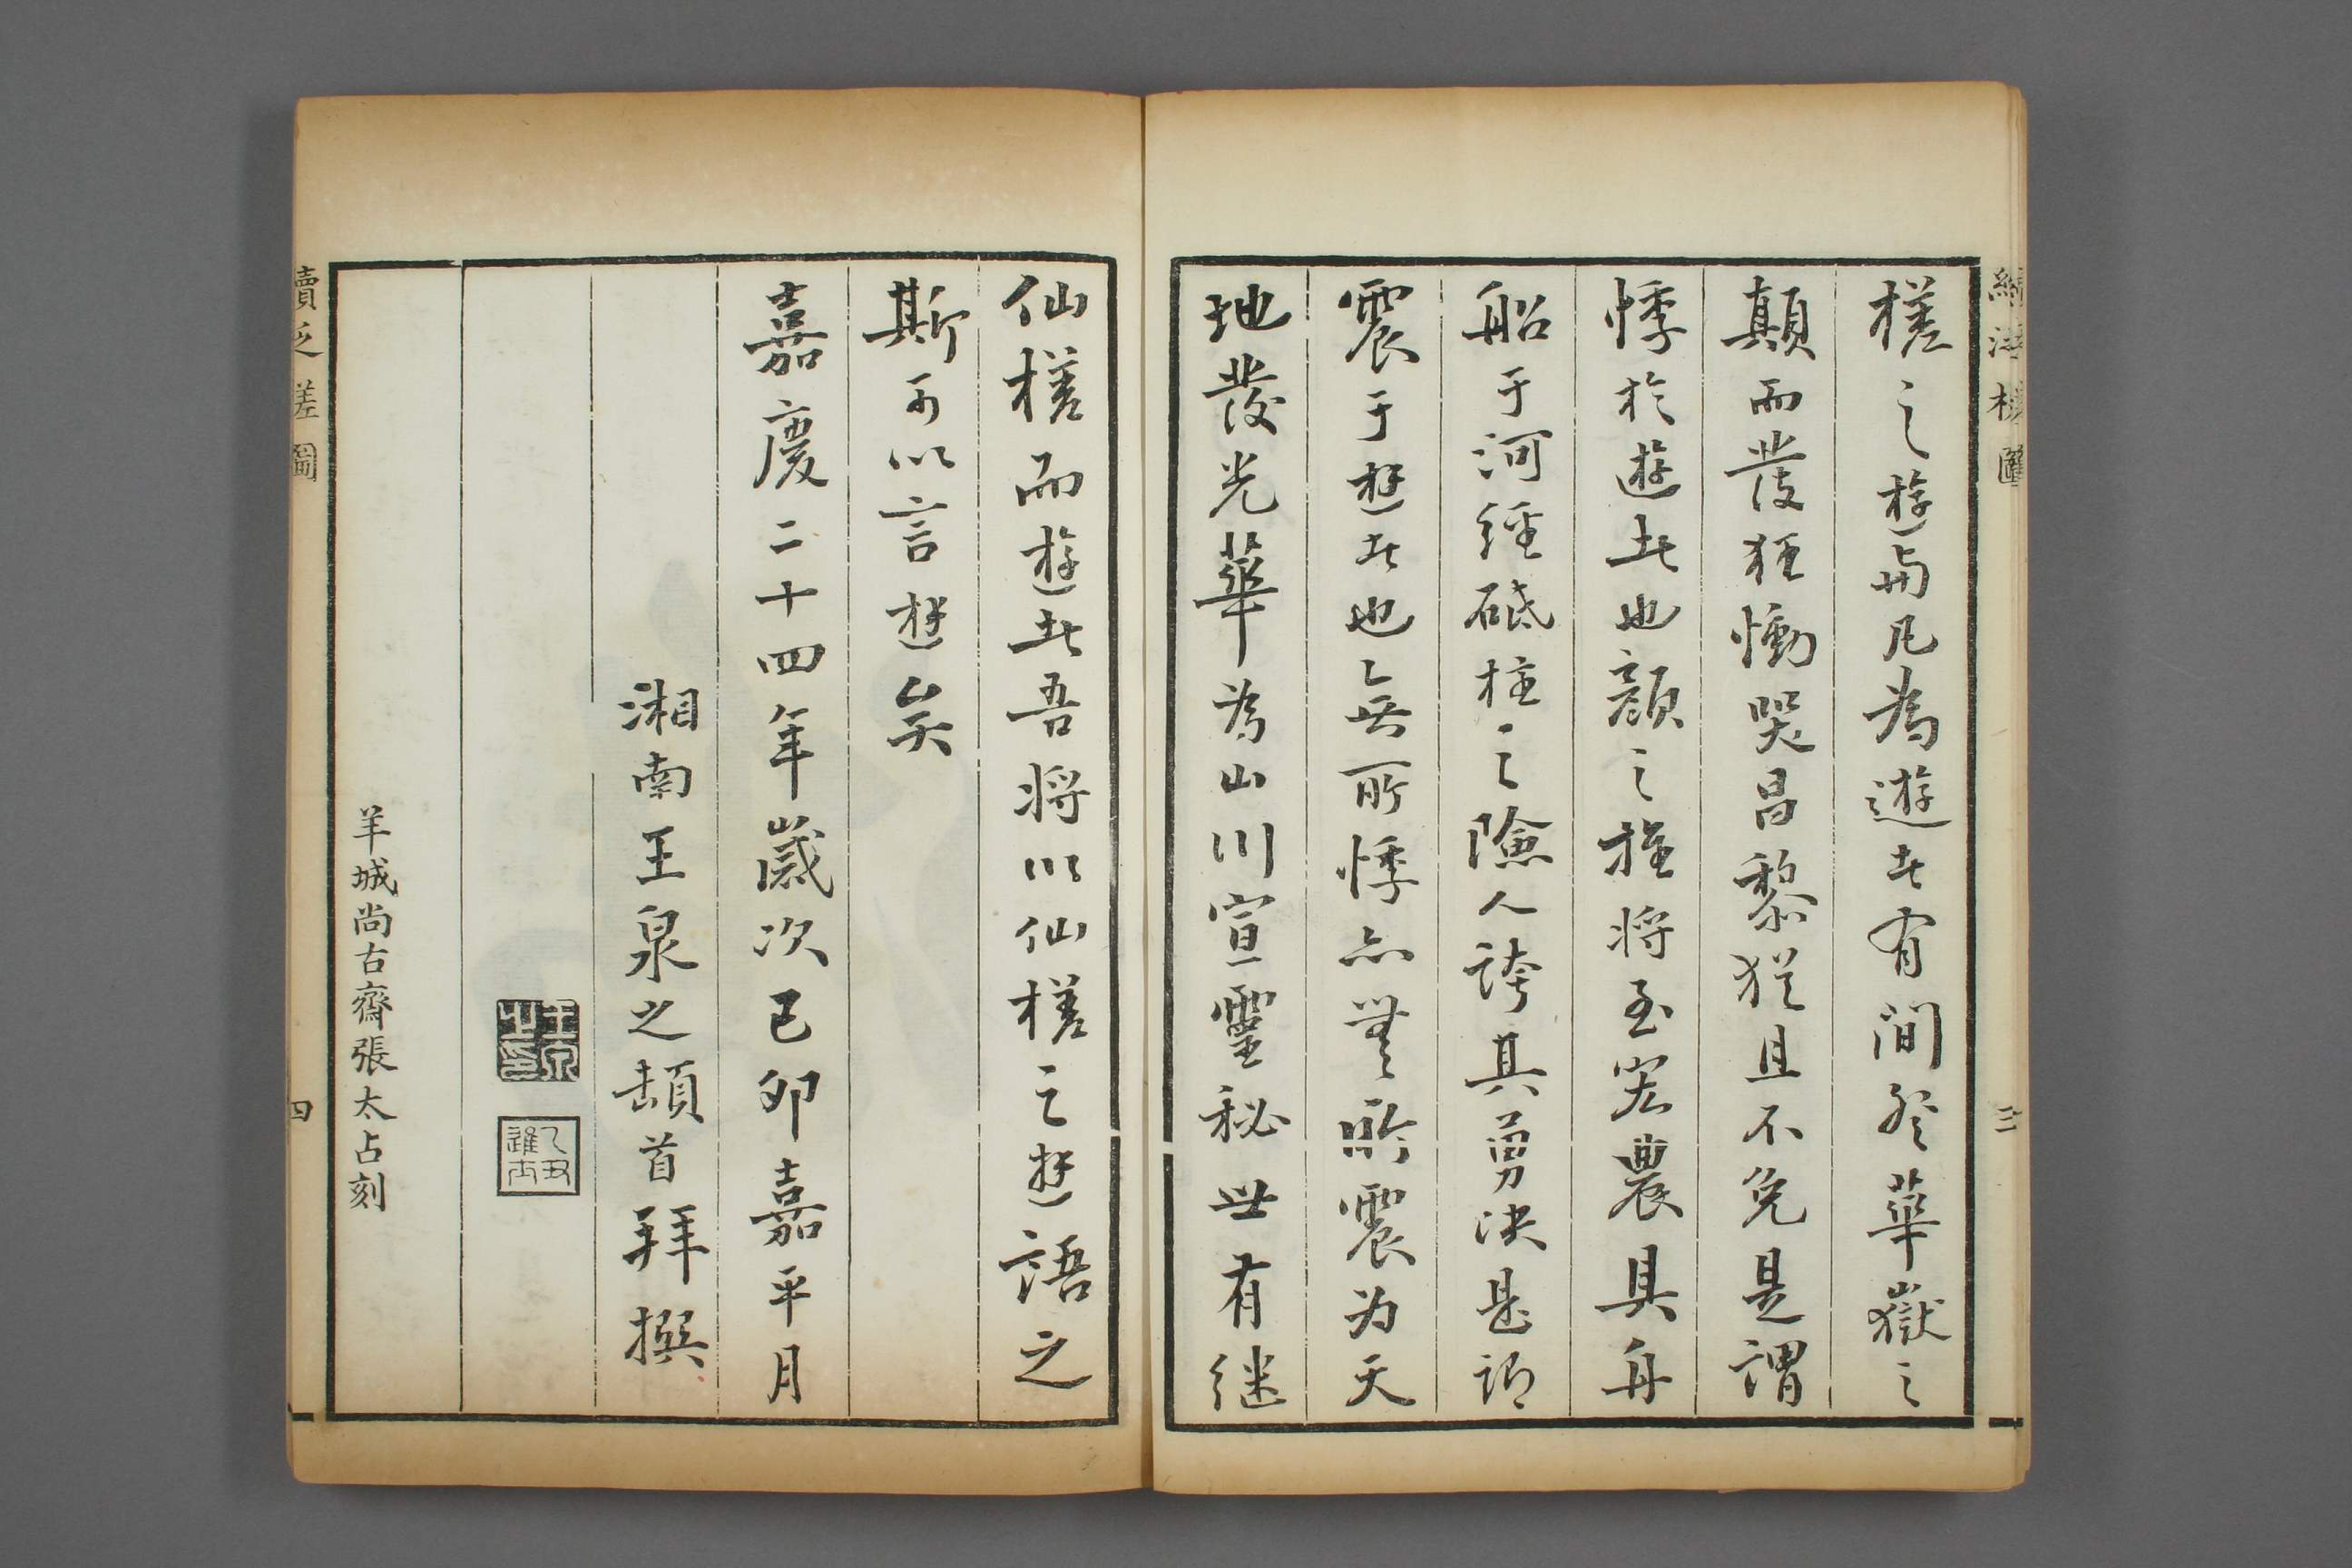 槎之遊與凡為遊者有間登華嶽之
顛而發狂慟哭昌黎猶且不免是謂
悸於遊者也顏之推將至宏農具舟
船于河經砥柱之險人誇其勇決是謂
震于遊者也無所悸亦無所震为天
地發光華為山川宣靈秘世有继
仙槎而遊者吾将以仙槎之遊語之
斯可以言遊矣
嘉慶二十四年歲次己卯嘉平月
湘南王泉之頓首拜撰
王泉之印
乙丑進士
羊城尚古齋張太占刻
續泛槎圖
三
續泛槎圖
四